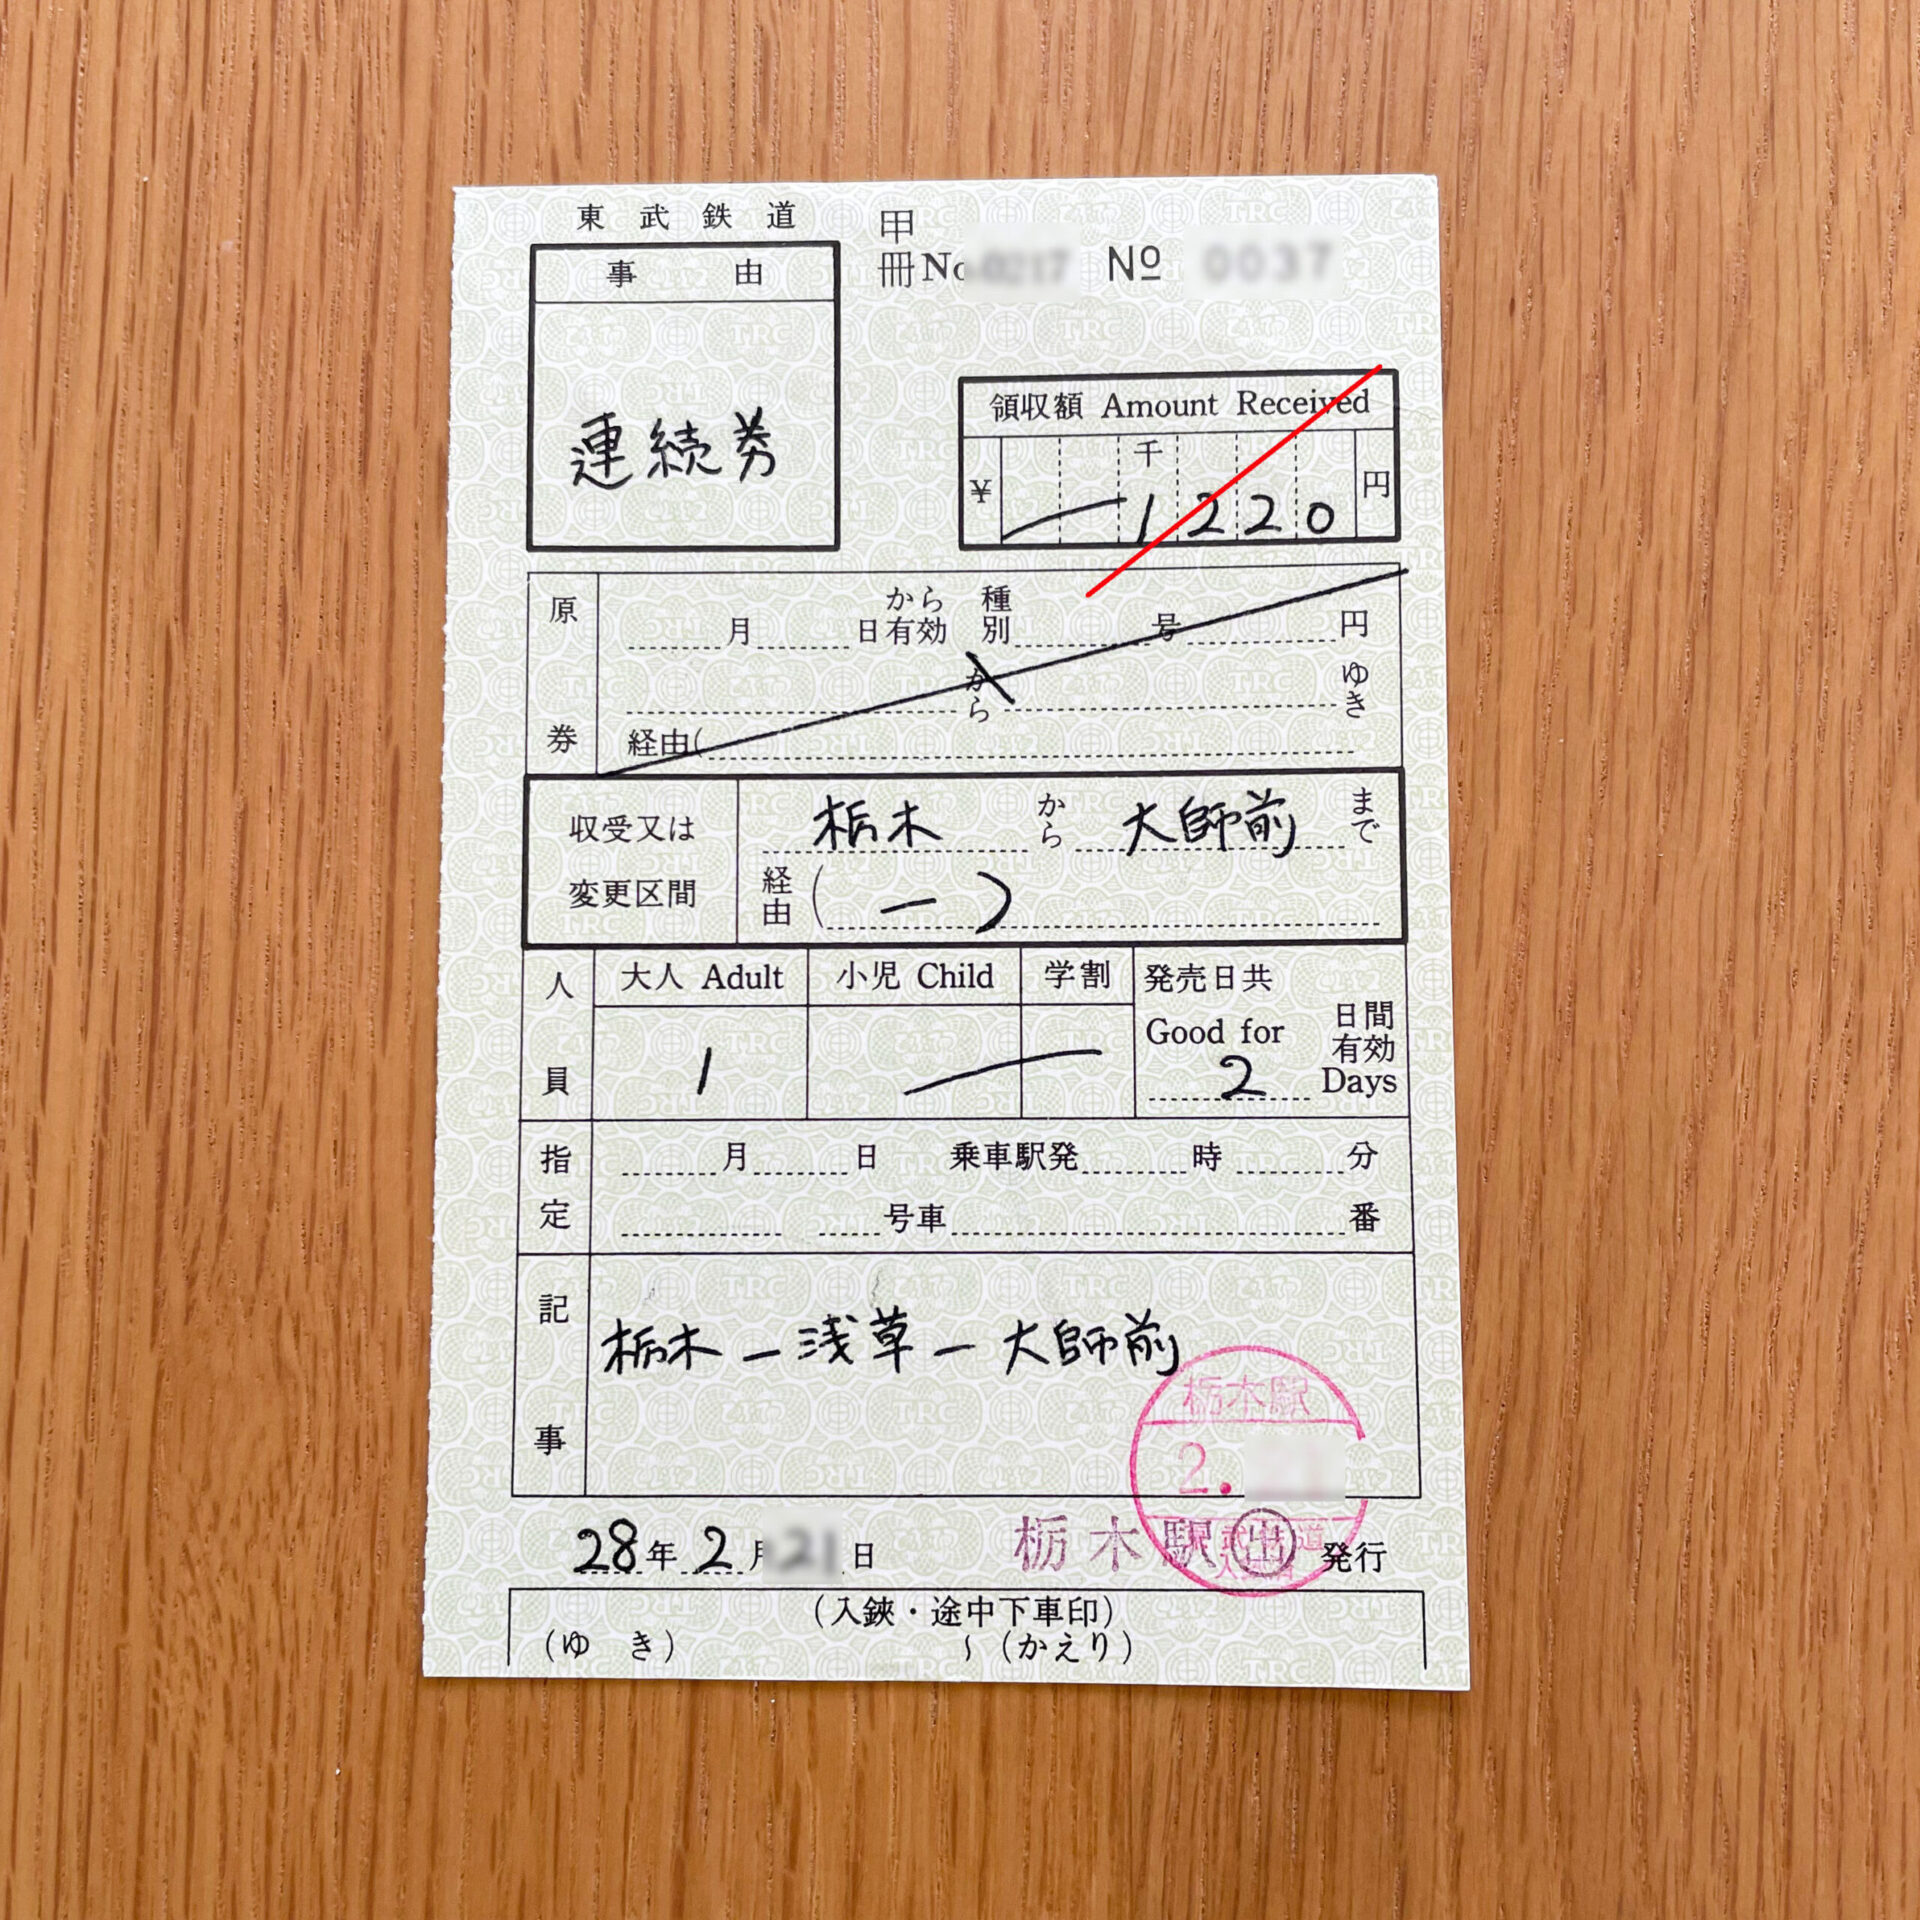 東武鉄道
甲
冊No Nº
事由
連続券
領収額 Amount Received
千
¥ 1220 円
原券
月 日から有効 種別 号 円
から ゆき
経由(
収受又は変更区間
栃木 から 大師前 まで
経由 (ー)
人員
大人 Adult 小児 Child 学割 発売日共
Good for 日間有効
1 2 Days
指定
月 日 乗車駅発 時 分
号車 番
記事
栃木ー浅草ー大師前
栃木駅
2.
28年2月 日 栃木駅 出 発行
(入鋏・途中下車印)
(ゆき) 〜 (かえり)